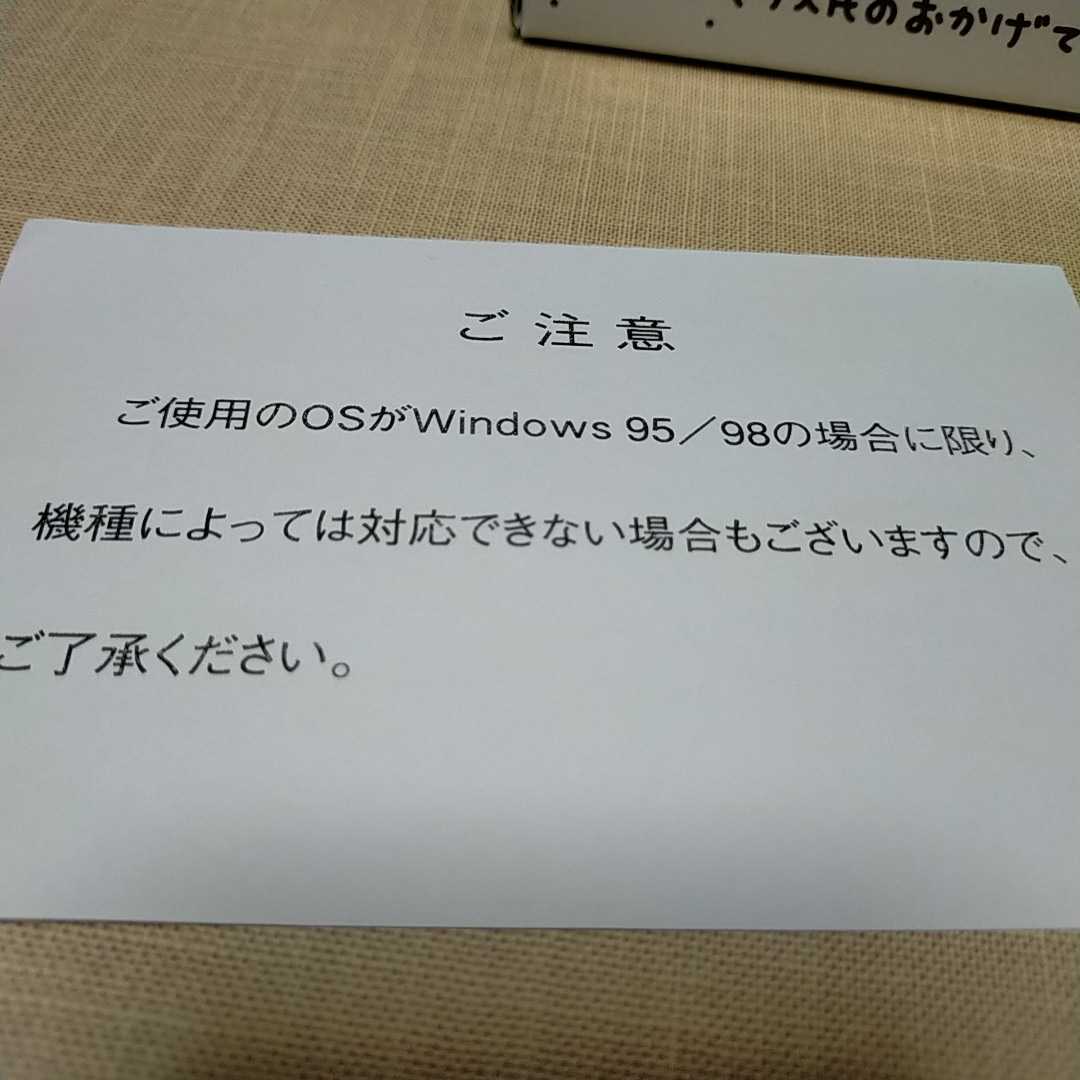 のおかげで
ご注意
ご使用のOSがWindows 95/98の場合に限り、
機種によっては対応できない場合もございますので、
ご了承ください。